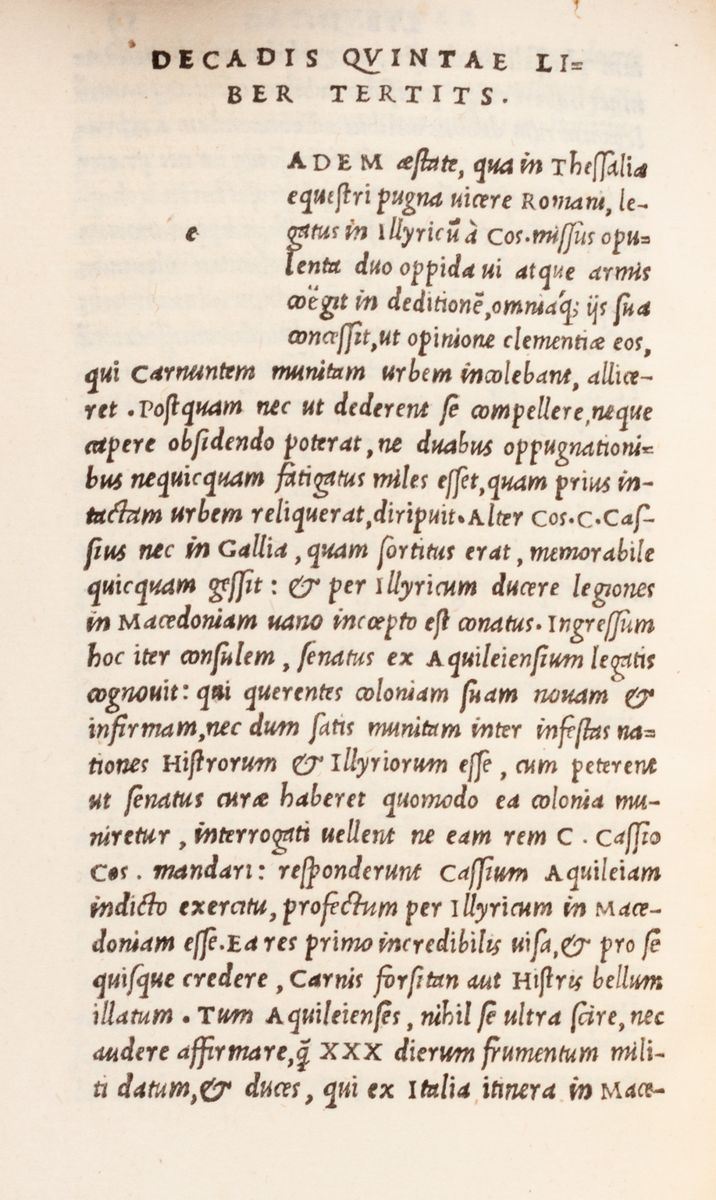 DECADIS QVINTAE LI=
BER TERTITS.
ADEM æstate, qua in Thessalia
equestri pugna uicere Romani, le-
e gatus in Illyricū à Cos.missus opu=
lenta duo oppida ui atque armis
coëgit in deditionē,omniaq́; ijs sua
concessit,ut opinione clementiæ eos,
qui Carnuntem munitam urbem incolebant, allice-
ret . Postquam nec ut dederent se compellere,neque
capere obsidendo poterat, ne duabus oppugnationi=
bus nequicquam fatigatus miles esset,quam prius in-
tactam urbem reliquerat,diripuit.Alter Cos.C.Cas-
sius nec in Gallia , quam sortitus erat , memorabile
quicquam gessit : & per Illyricum ducere legiones
in Macedoniam uano incœpto est conatus. Ingressum
hoc iter consulem , senatus ex Aquileiensium legatis
cognouit: qui querentes coloniam suam nouam &
infirmam,nec dum satis munitam inter infestas na=
tiones Histrorum & Illyriorum esse , cum peterent
ut senatus curæ haberet quomodo ea colonia mu-
niretur , interrogati uellent ne eam rem C . Cassio
Cos . mandari: responderunt Cassium Aquileiam
indicto exercitu, profectum per Illyricum in Mace-
doniam esse.Ea res primo incredibilis uisa,& pro se
quisque credere , Carnis forsitan aut Histris bellum
illatum . Tum Aquileienses , nihil se ultra scire, nec
audere affirmare,q̃ XXX dierum frumentum mili-
ti datum,& duces , qui ex Italia itinera in Mace-